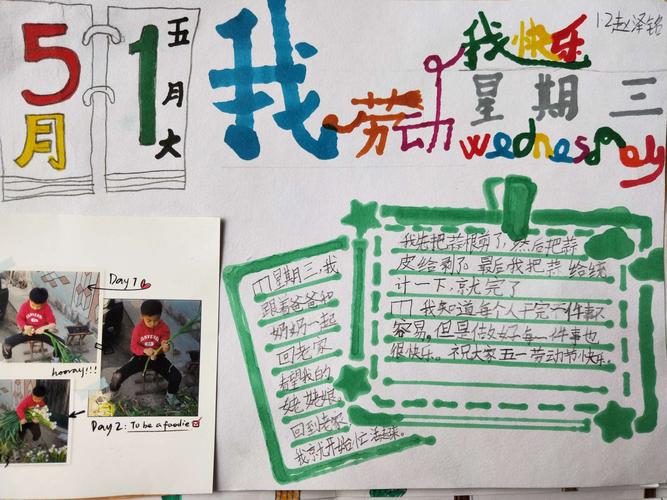 5
月
1
五
月
大
我
劳动
我快乐
星期三
wednesday
12赵泽铭
Day 1
hooray!!!
Day 2: To be a foodie
星期三,我
跟着爸爸和
奶奶一起
回老家
看望我的
姥姥娘。
回到老家
我就开始忙活起来。
我先把蒜根剪了,然后把蒜
皮给剥了。最后我把蒜给统
计一下,就完了
我知道每个人干完一件事不
容易,但是做好每一件事也
很快乐。祝大家五一劳动节快乐。